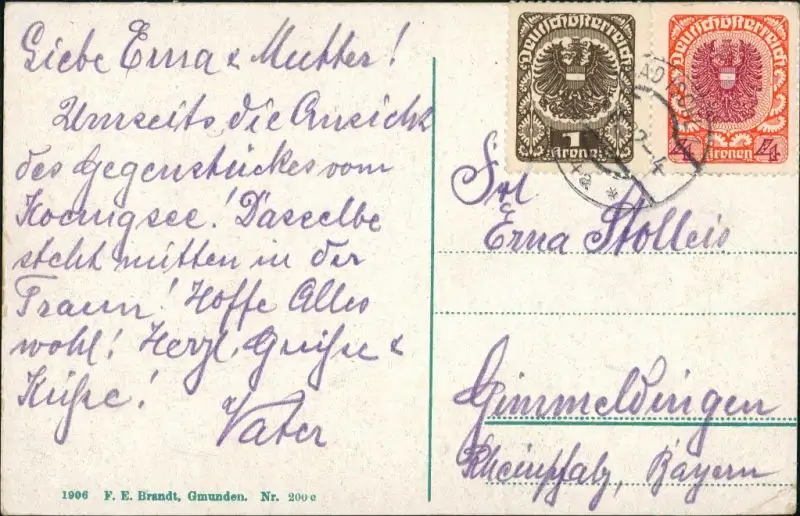 Liebe Erna & Mutter!
Umseits die Ansicht
des Gegenstückes vom
Koenigsee! Dasselbe
steht mitten in der
Traun! Hoffe Alles
wohl! Herzl. Grüße &
Küße!
Vater
1906 F. E. Brandt, Gmunden. Nr. 200c
Deutschösterreich
1
Kronen
Deutschösterreich
4 4
Kronen
2-4
Frl
Erna Stolleis
Gimmeldingen
Rheinpfalz, Bayern